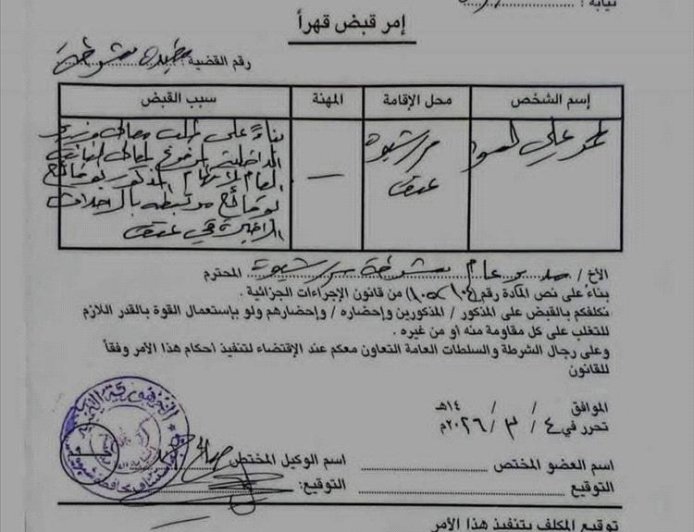 نيابة :
إمر قبض قهراً
رقم القضية
إسم الشخص
محل الإقامة
المهنة
سبب القبض
علي
مرشبوة
عتق
—
بناءً على طلب معالي وزير
الداخلية المرفوع لمعالي النائب
العام لاتهام المذكور بوقائع
لوقائع مرتبطه بالاحداث
الاخيرة في عتق
الأخ / مدير عام شرطة شبوة المحترم
بناءً على نص المادة رقم من قانون الإجراءات الجزائية .
نكلفكم بالقبض على المذكور / المذكورين وإحضاره / وإحضارهم ولو بإستعمال القوة بالقدر اللازم
للتغلب على كل مقاومة منه او من غيره .
وعلى رجال الشرطة والسلطات العامة التعاون معكم عند الإقتضاء لتنفيذ احكام هذا الأمر وفقاً
للقانون
الموافق / / ١٤هـ
تحرر في ٤ / ٣ / ٢٠٢٦م
اسم العضو المختص
اسم الوكيل المختص
التوقيع
التوقيع:
توقيع المكلف بتنفيذ هذا الأمر